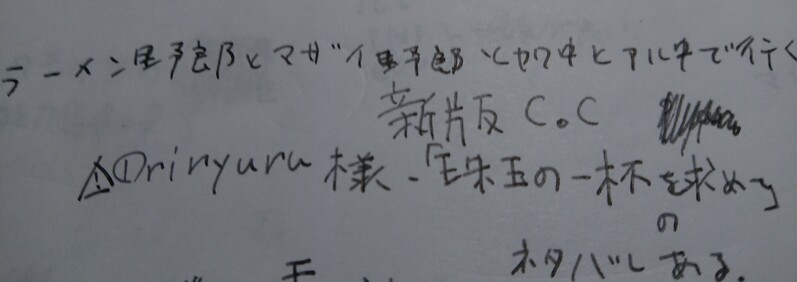 ラーメン野郎とマザー野郎とヤク中とアル中で行く
新版 C.C
⚠①riryuru様、「珠玉の一杯を求め」
の
ネタバレある.